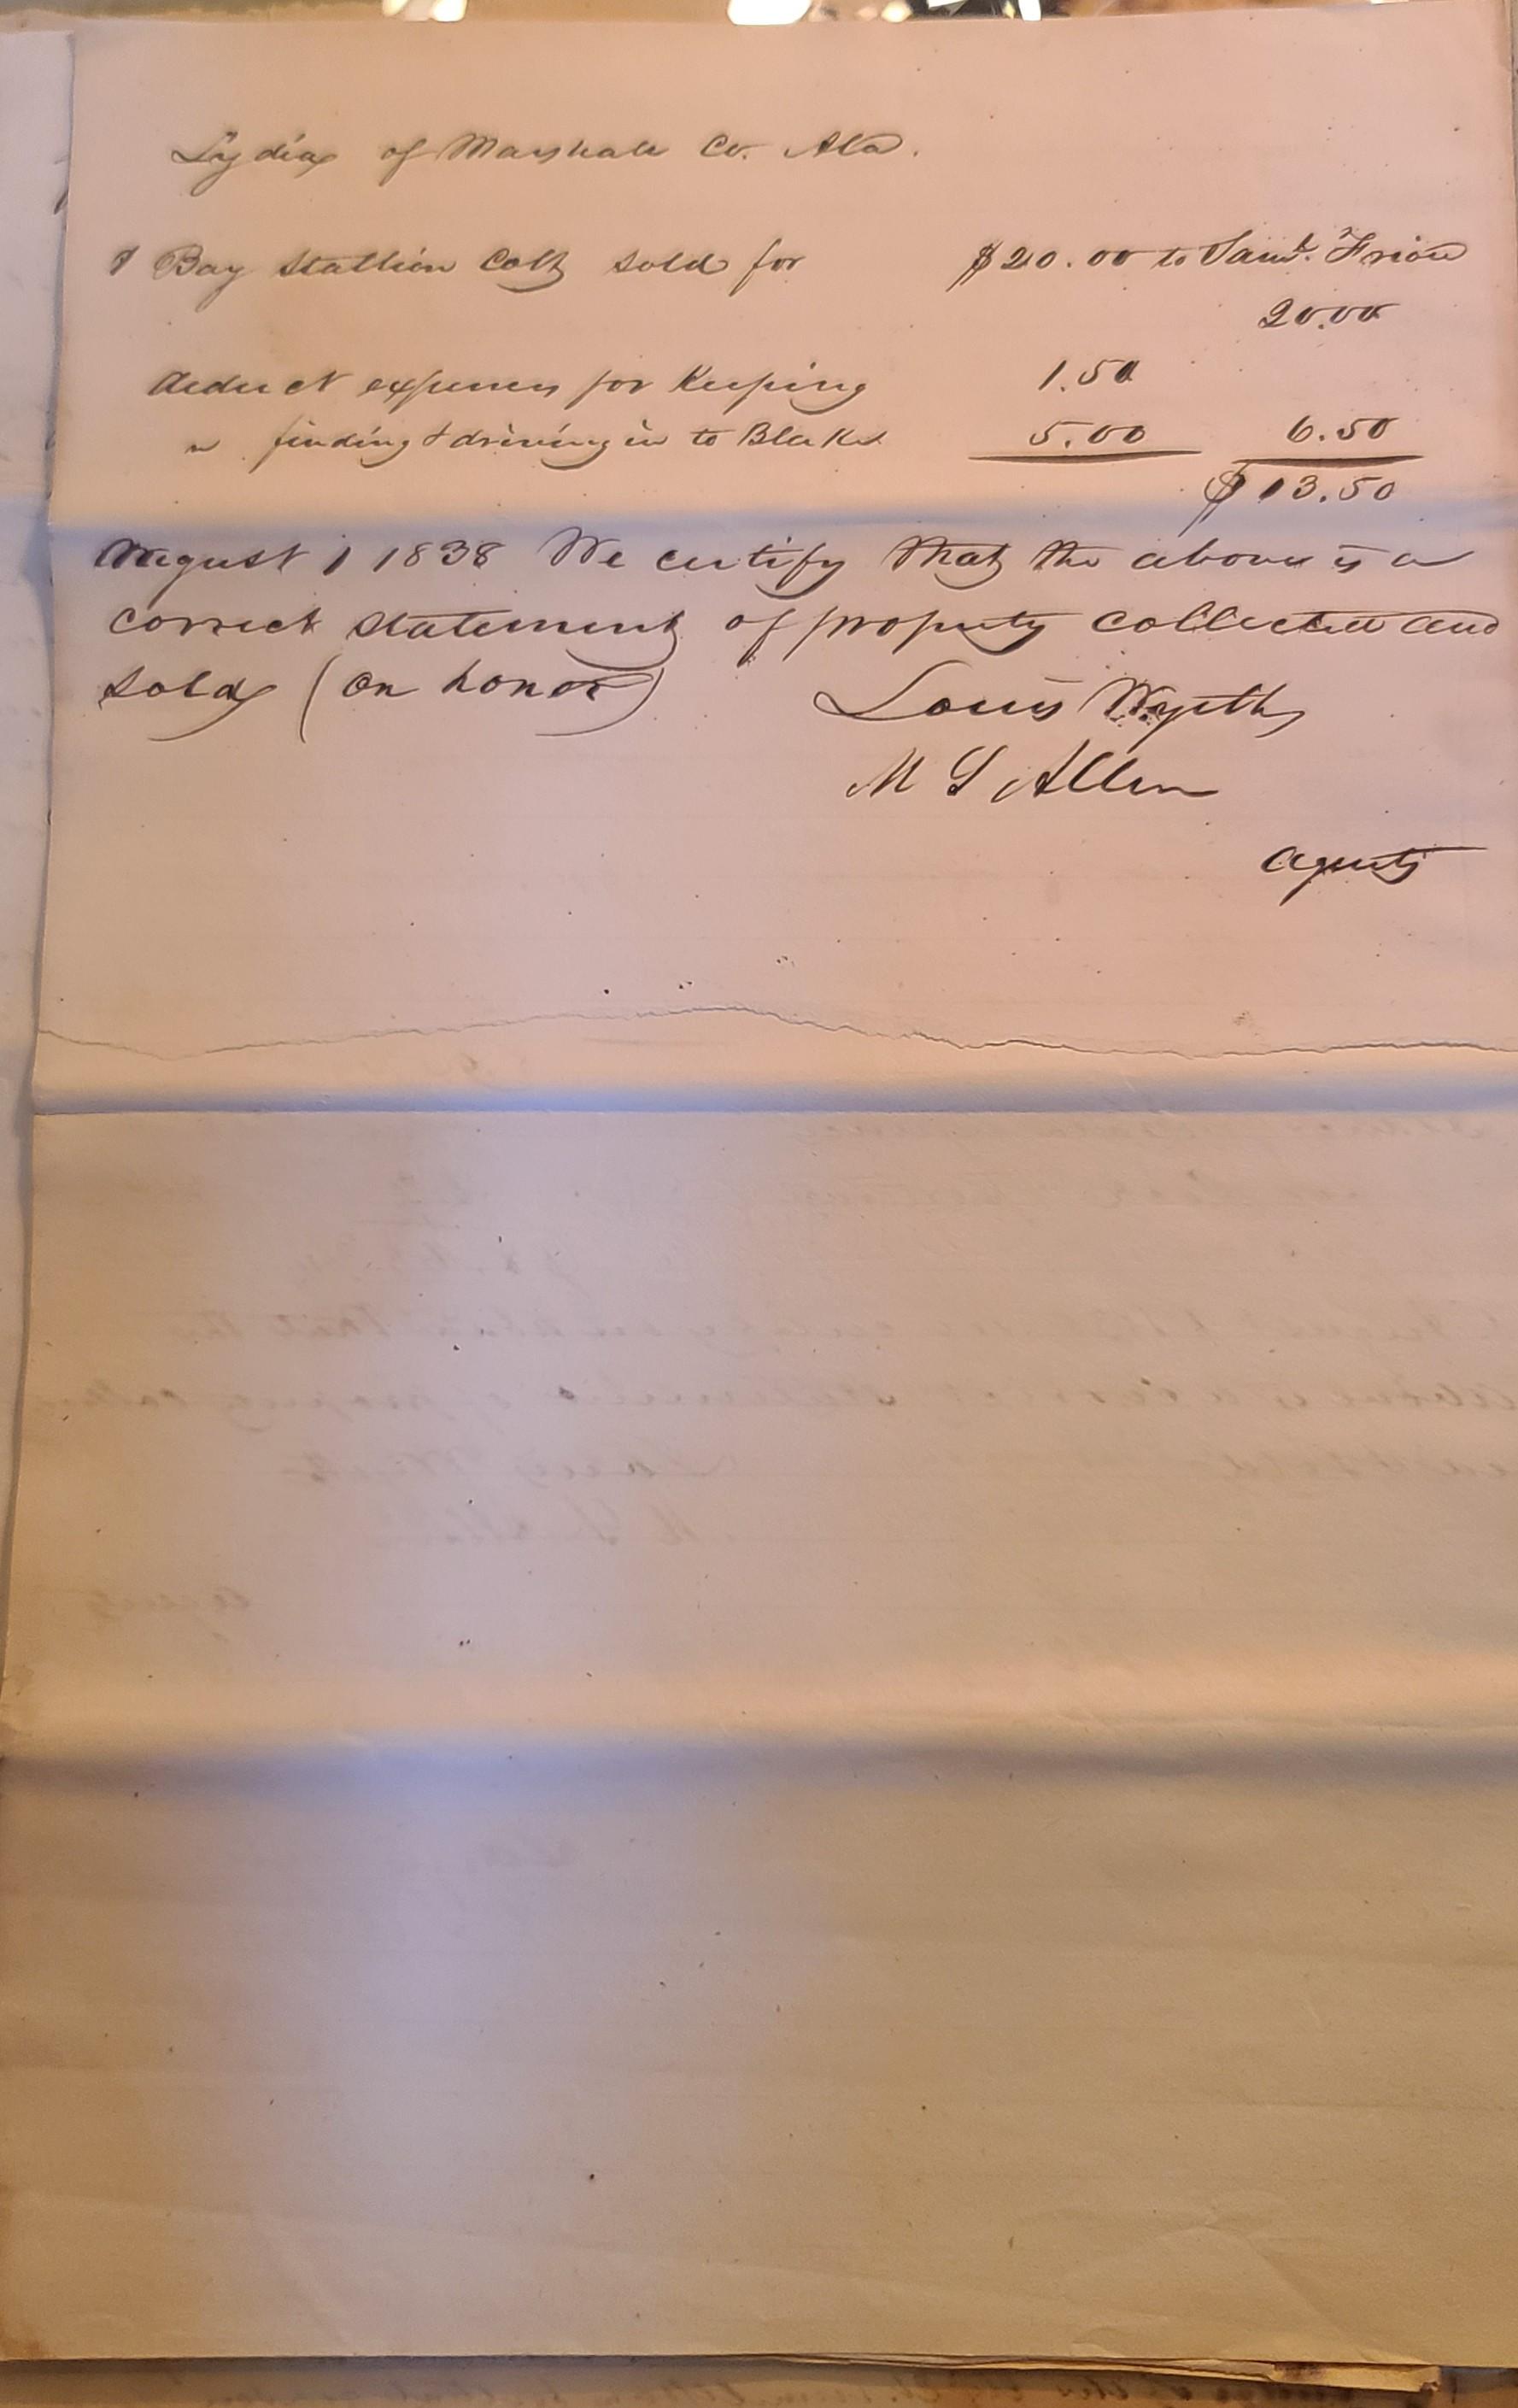 Lydia of Marshall Co. Ala.
1 Bay Stallion Colt sold for $20.00 to Saml. Frion
20.00
deduct expenses for Keeping 1.50
" finding & driving in to Blakes 5.00 6.50
$13.50
August 1 1838 We certify that the above is a
correct statement of property collected and
sold (on honor) Louis Wyeth
M L Allen
agents